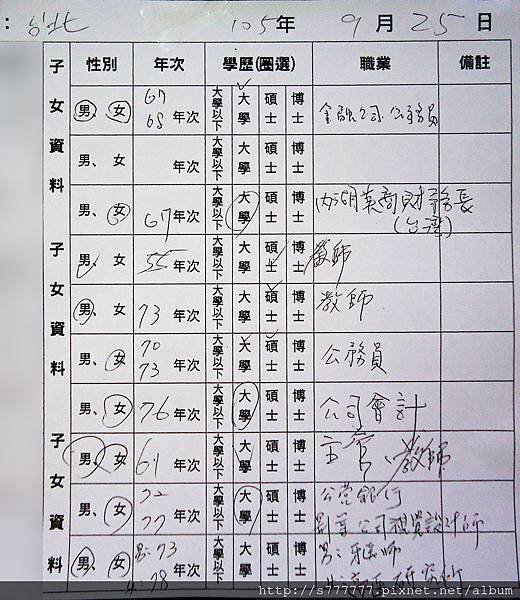 ：台北 105年 9月25日
子女資料 性別 年次 學歷(圈選) 職業 備註
男、女 67 68 年次 大學以下 大學 碩士 博士 金融公司 公務員
男、女 年次 大學以下 大學 碩士 博士
男、女 67年次 大學以下 大學 碩士 博士 內湖英商財務長 (台灣)
子女資料 男、女 55年次 大學以下 大學 碩士 博士 教師
男、女 73年次 大學以下 大學 碩士 博士 教師
男、女 70 73 年次 大學以下 大學 碩士 博士 公務員
男、女 76年次 大學以下 大學 碩士 博士 公司會計
子女資料 男、女 61年次 大學以下 大學 碩士 博士 主管、教師
男、女 72 77 年次 大學以下 大學 碩士 博士 公營銀行 公司視覺設計師
男、女 男:73 78 年次 大學以下 大學 碩士 博士 男:牙醫師
http://s777777.pixnet.net/album